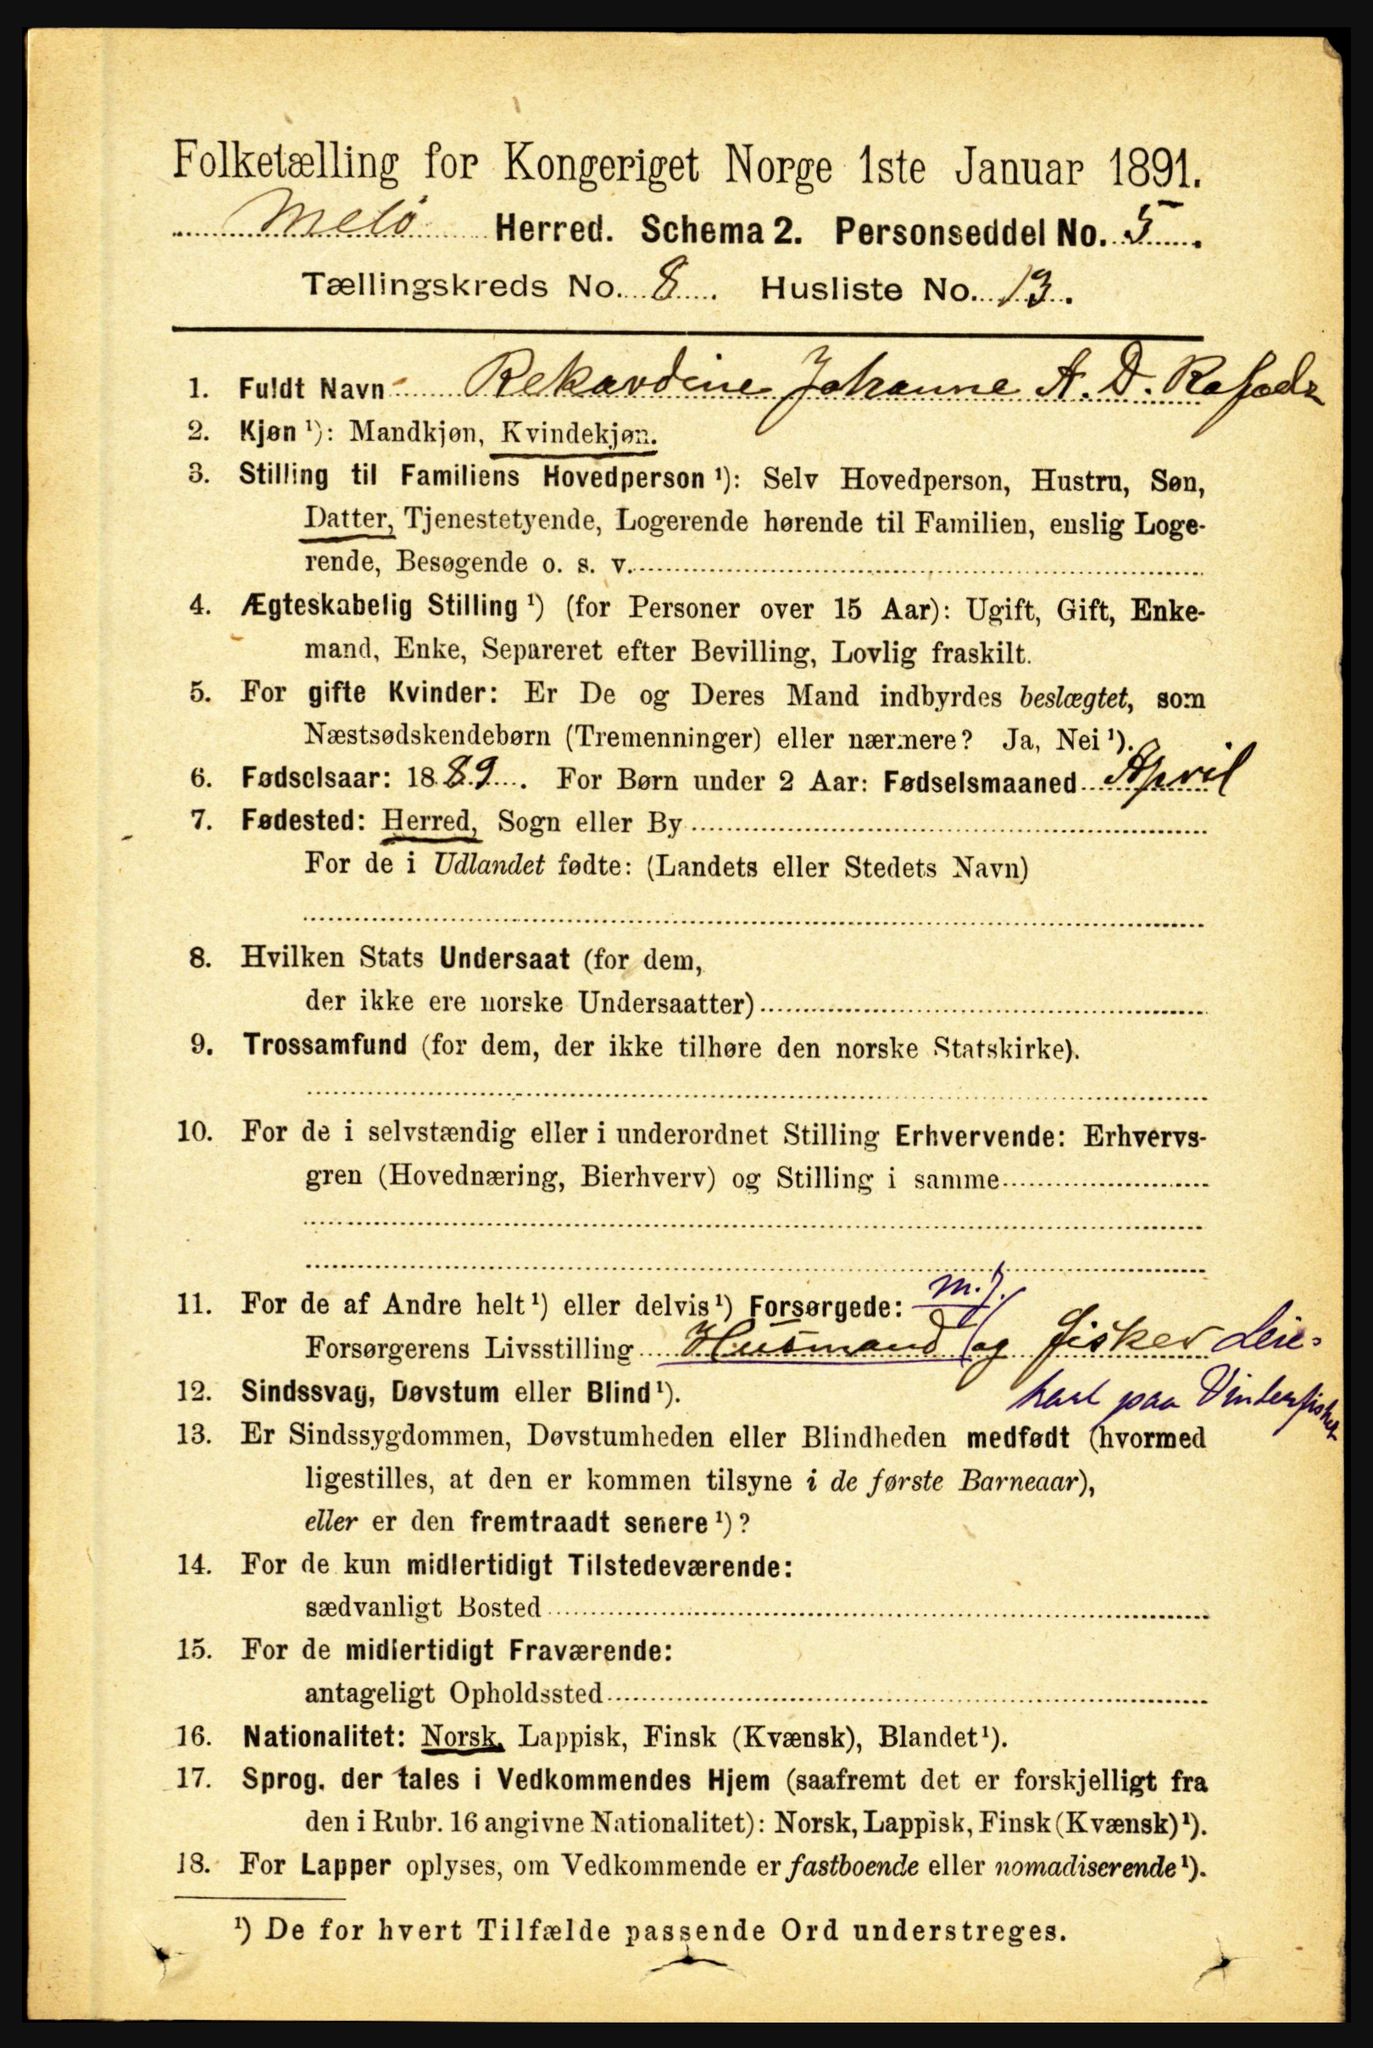 Folketælling for Kongeriget Norge 1ste Januar 1891.
Melö Herred. Schema 2. Personseddel No. 5.
Tællingskreds No. 8. Husliste No. 13.
1. Fuldt Navn Rekardine Johanne A. D.
2. Kjøn ¹): Mandkjøn, Kvindekjøn.
3. Stilling til Familiens Hovedperson ¹): Selv Hovedperson, Hustru, Søn,
Datter, Tjenestetyende, Logerende hørende til Familien, enslig Loge-
rende, Besøgende o. s. v.
4. Ægteskabelig Stilling ¹) (for Personer over 15 Aar): Ugift, Gift, Enke-
mand, Enke, Separeret efter Bevilling, Lovlig fraskilt.
5. For gifte Kvinder: Er De og Deres Mand indbyrdes beslægtet, som
Næstsødskendebørn (Tremenninger) eller nærmere? Ja, Nei ¹).
6. Fødselsaar: 1889. For Børn under 2 Aar: Fødselsmaaned April
7. Fødested: Herred, Sogn eller By
For de i Udlandet fødte: (Landets eller Stedets Navn)
8. Hvilken Stats Undersaat (for dem,
der ikke ere norske Undersaatter)
9. Trossamfund (for dem, der ikke tilhøre den norske Statskirke).
10. For de i selvstændig eller i underordnet Stilling Erhvervende: Erhvervs-
gren (Hovednæring, Bierhverv) og Stilling i samme
m. J.
11. For de af Andre helt ¹) eller delvis ¹) Forsørgede:
Forsørgerens Livsstilling Husmand og fisker Leie-
karl paa Vinterfisket
12. Sindssvag, Døvstum eller Blind ¹).
13. Er Sindssygdommen, Døvstumheden eller Blindheden medfødt (hvormed
ligestilles, at den er kommen tilsyne i de første Barneaar),
eller er den fremtraadt senere ¹)?
14. For de kun midlertidigt Tilstedeværende:
sædvanligt Bosted
15. For de midlertidigt Fraværende:
antageligt Opholdssted
16. Nationalitet: Norsk, Lappisk, Finsk (Kvænsk), Blandet ¹).
17. Sprog, der tales i Vedkommendes Hjem (saafremt det er forskjelligt fra
den i Rubr. 16 angivne Nationalitet): Norsk, Lappisk, Finsk (Kvænsk) ¹).
18. For Lapper oplyses, om Vedkommende er fastboende eller nomadiserende ¹).
¹) De for hvert Tilfælde passende Ord understreges.